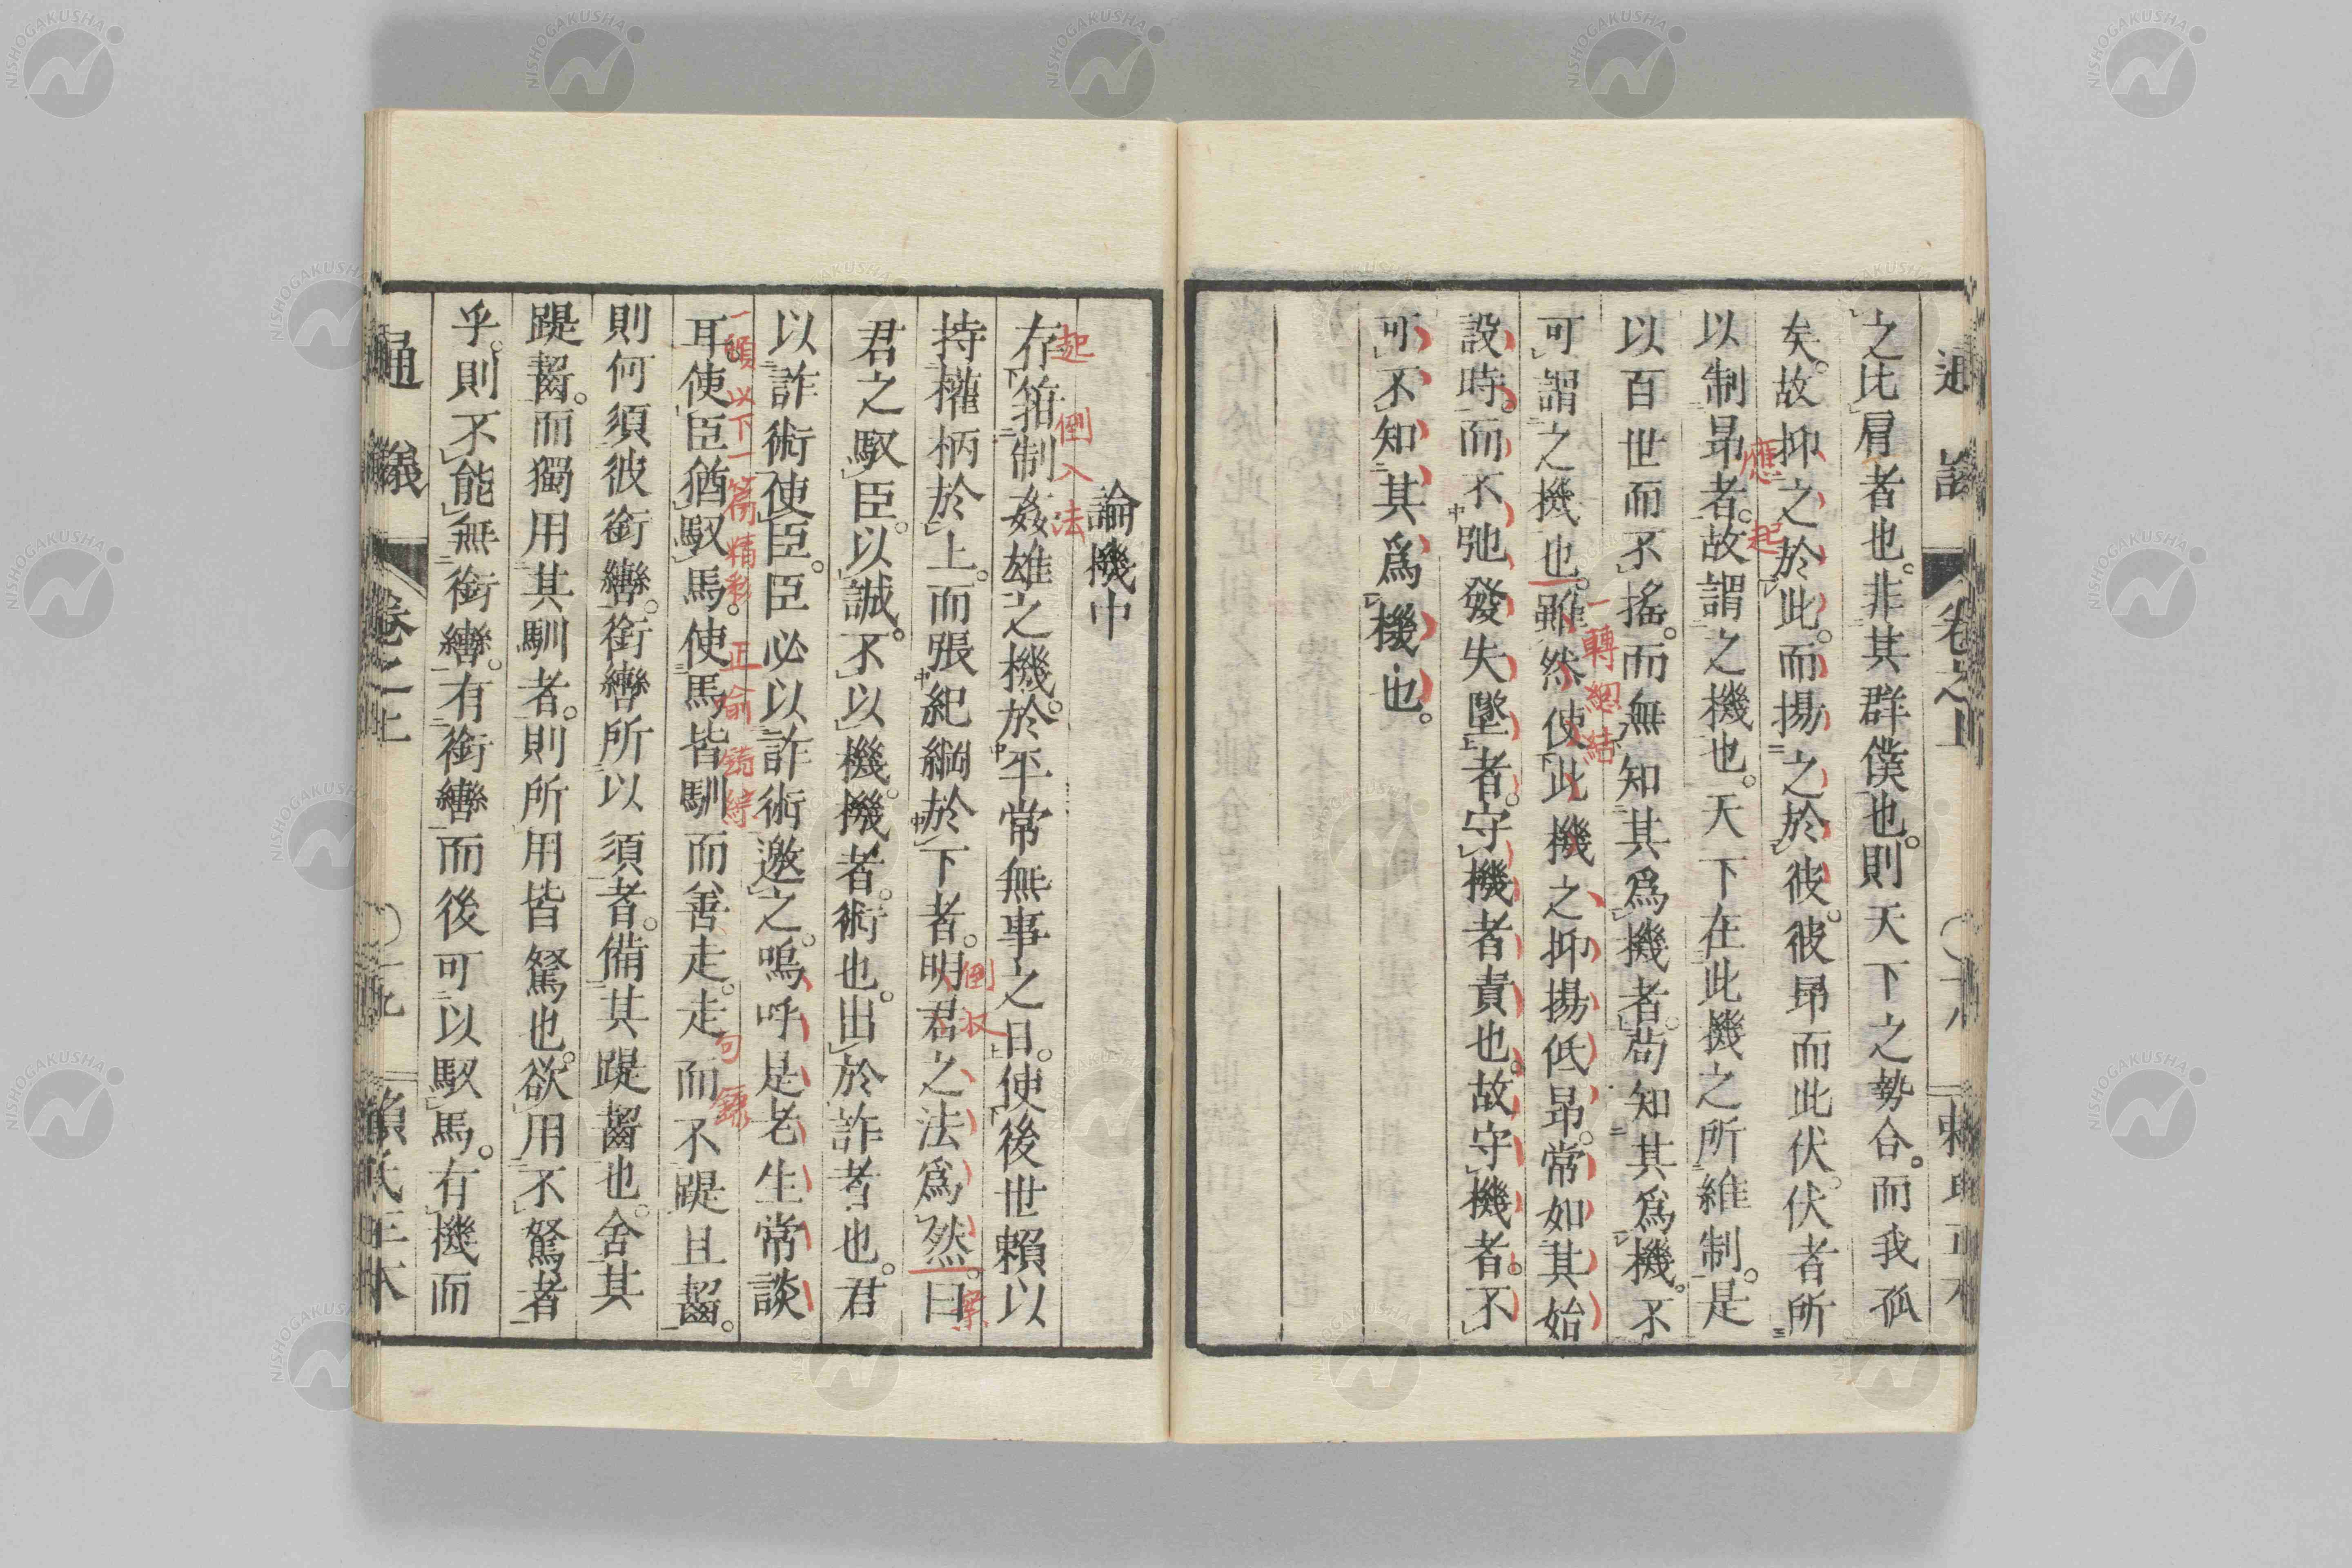 之比肩者也。非其群僕也。則天下之勢合。而我孤
矣。故抑之於此。而揚之於彼。彼昂而此伏。伏者所
以制昂者。故謂之機也。天下在此機之所維制。是
以百世而不搖。而無知其爲機者。苟知其爲機。不
可謂之機也。雖然使此機之抑揚低昂。常如其始
設時。而不弛發失墜者。守機者責也。故守機者。不
可不知其爲機也。
應起
一轉總結
論機中
存箝制姦雄之機。於平常無事之日。使後世賴以
持權柄於上。而張紀綱於下者。明君之法爲然。曰
君之馭臣。以誠。不以機。機者。術也。出於詐者也。君
以詐術使臣。臣必以詐術邀之。嗚呼是老生常談
耳。使臣猶馭馬。使馬皆馴而善走。走而不踶且齧。
則何須彼銜轡。銜轡所以須者。備其踶齧也。舍其
踶齧。而獨用其馴者。則所用皆駑也。欲用不駑者
乎。則不能無銜轡。有銜轡而後可以馭馬。有機而
起 倒入法
倒收
案
一頓以下一篇精彩
正喻錯綜
句鍊
通議
卷之上
通議 卷之上 〇十九 賴氏正本
NISHOGAKUSHA